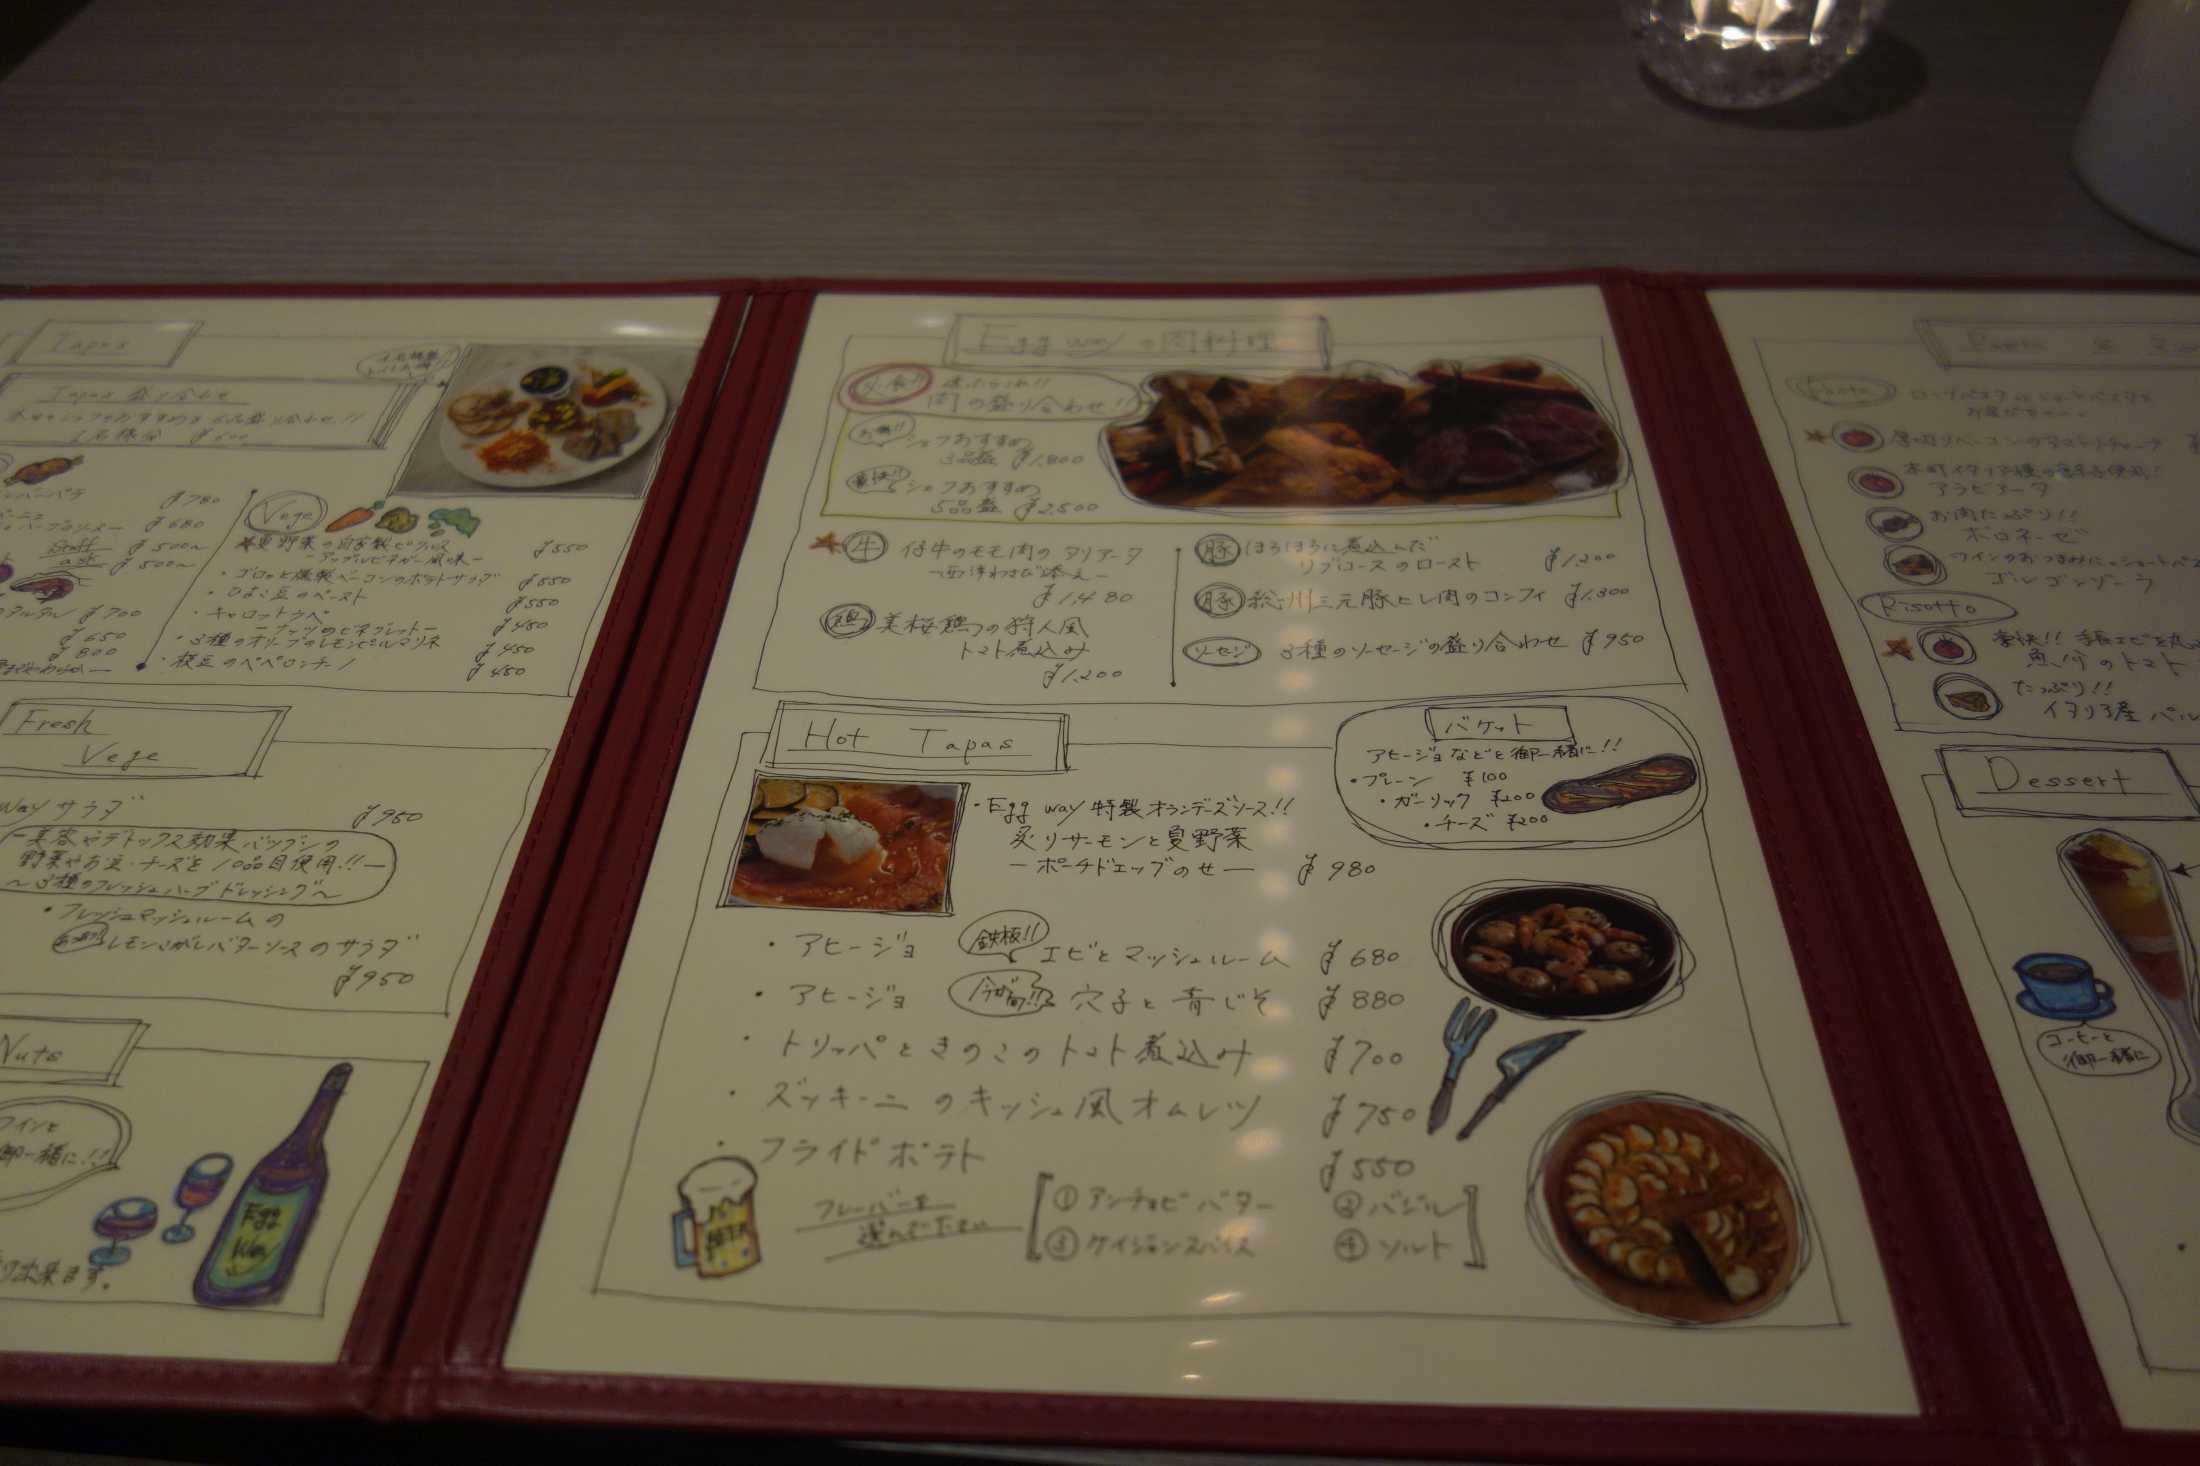 Tapas
Tapas 盛り合わせ
¥600
¥780
¥680
Staff
¥500〜
ask
¥500〜
タルタル ¥700
¥650
¥800
Vege
夏野菜の自家製ピクルス ¥550
-アップルビネガー風味-
・ゴロッと燻製ベーコンのポテトサラダ ¥550
・ひよこ豆のペースト ¥550
・キャロットラペ
-ナッツのビネグレット- ¥450
・3種のオリーブのレモンピールマリネ ¥450
・枝豆のペペロンチーノ ¥450
Fresh
Vege
Wayサラダ ¥950
-美容やデトックス効果バツグンの
野菜やお豆・チーズを10品目使用!!-
〜3種のフレッシュハーブドレッシング〜
・フレッシュマッシュルームの
レモンこがしバターソースのサラダ
¥950
Nuts
ワインと
御一緒に!!
出来ます。
Egg
Way
Egg wayの肉料理
肉の盛り合わせ!!
シェフおすすめ
3品盛 ¥1,800
豪快!!
シェフおすすめ
5品盛 ¥2,500
牛 仔牛のモモ肉のタリアータ
-西洋わさび添え-
¥1,480
鶏 美桜鶏の狩人風
トマト煮込み
¥1,200
豚 ほろほろに煮込んだ
リブロースのロースト ¥1,200
豚 総州三元豚ヒレ肉のコンフィ ¥1,300
ソーセージ 3種のソーセージの盛り合わせ ¥950
Hot Tapas
バケット
アヒージョなどと御一緒に!!
・プレーン ¥100
・ガーリック ¥200
・チーズ ¥200
・Egg way 特製オランデーズソース!!
炙りサーモンと夏野菜
-ポーチドエッグのせ- ¥980
・アヒージョ 鉄板!! エビとマッシュルーム ¥680
・アヒージョ 今が旬!! 穴子と青じそ ¥880
・トリッパときのこのトマト煮込み ¥700
・ズッキーニのキッシュ風オムレツ ¥750
・フライドポテト ¥550
フレーバーを
選んで下さい
①アンチョビバター ②バジル
③ケイジャンスパイス ④ソルト
Pasta
厚切りベーコンのアマトリチャーナ
アラビアータ
お肉たっぷり!!
ボロネーゼ
ワインのおつまみに。ショートパスタ
ゴルゴンゾーラ
Risotto
豪快!! 手長エビを丸
魚介のトマト
たっぷり!!
イタリア産 パル
Dessert
コーヒーと
御一緒に